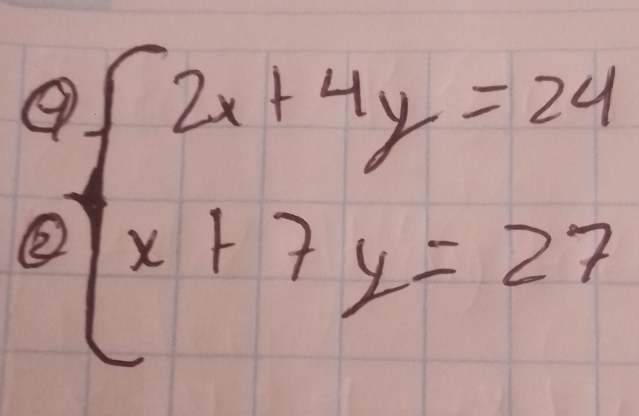 ① 2x + 4y = 24
② x + 7y = 27